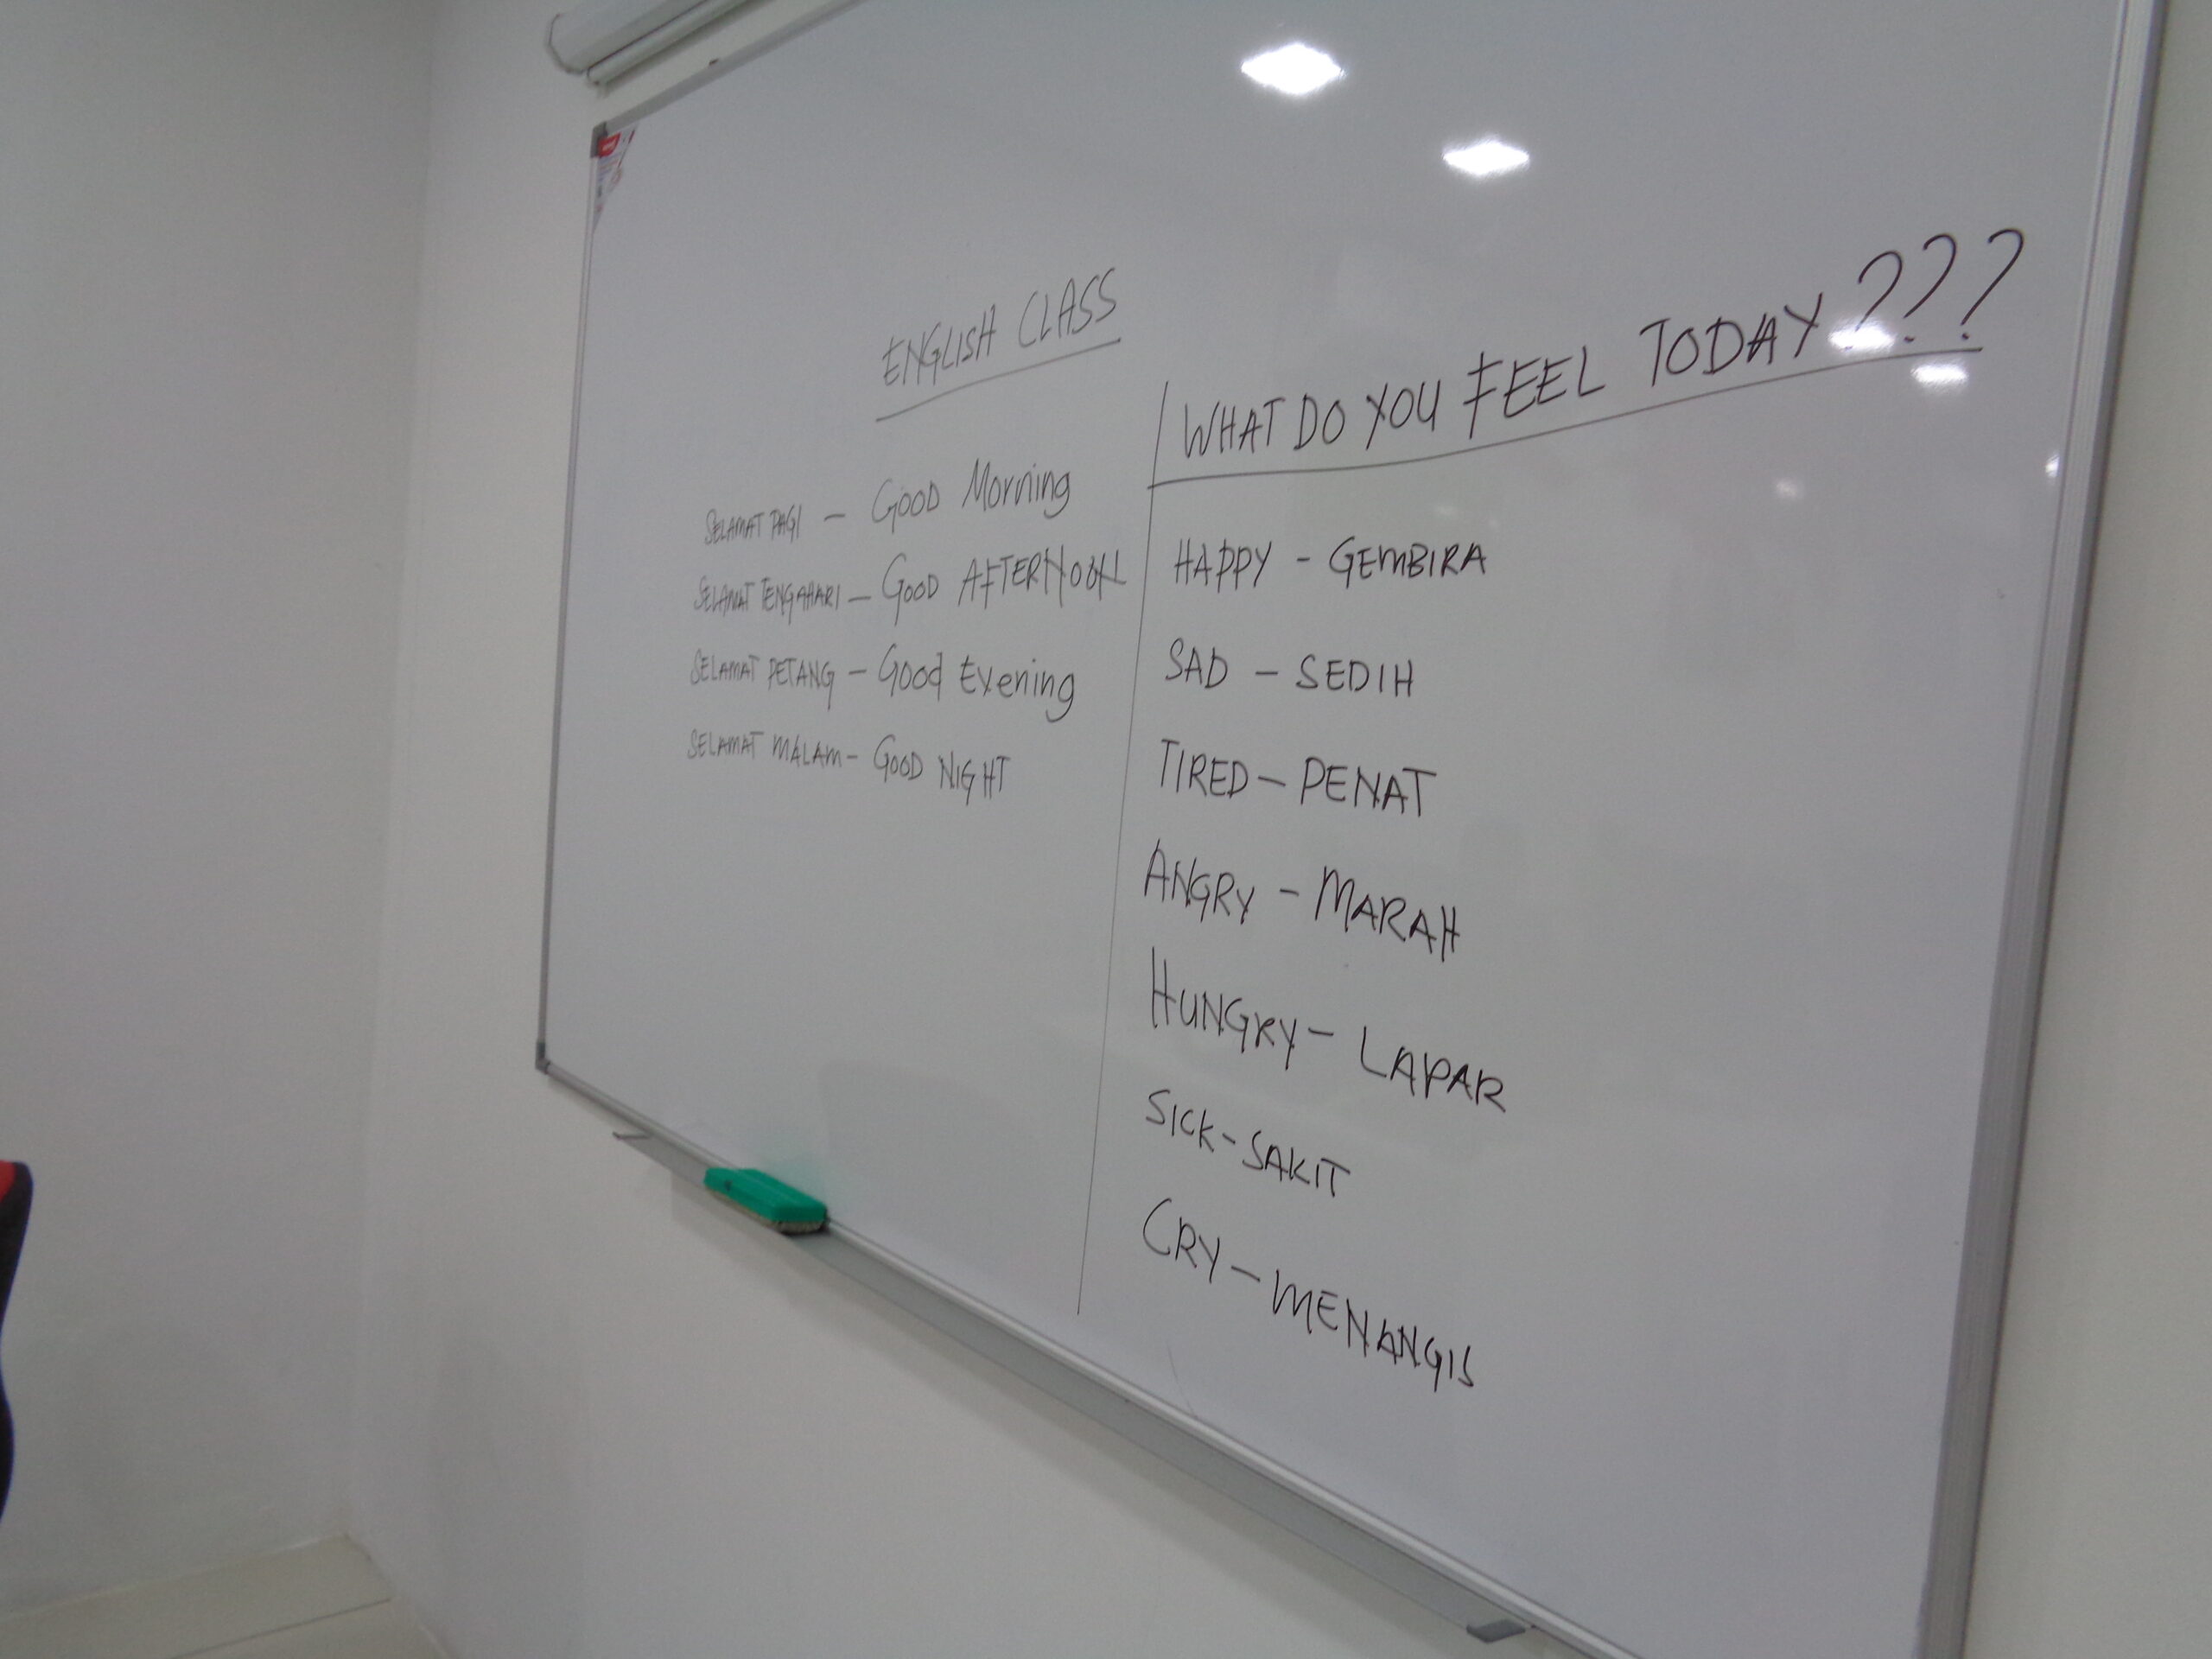 ENGLISH CLASS
SELAMAT PAGI - Good Morning
SELAMAT TENGAHARI - Good AFTERNOON
SELAMAT PETANG - Good Evening
SELAMAT MALAM - Good NIGHT
WHAT DO YOU FEEL TODAY???
HAPPY - GEMBIRA
SAD - SEDIH
TIRED - PENAT
ANGRY - MARAH
HUNGRY - LAPAR
SICK - SAKIT
CRY - MENANGIS